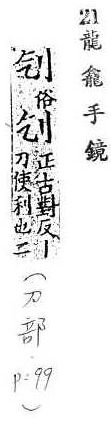 21 龍龕手鏡
俗 正古對反丨
刀使利也二
（刀部 p:99）